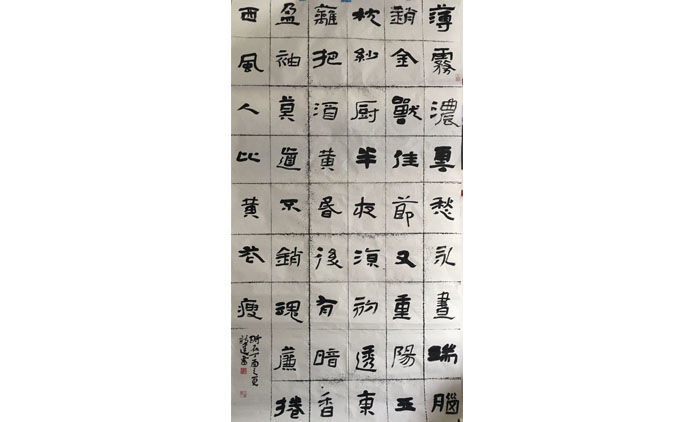 薄霧濃雲愁永晝瑞腦
銷金獸佳節又重陽玉
枕紗厨半夜涼初透東
籬把酒黄昏後有暗香
盈袖莫道不銷魂簾捲
西風人比黄花瘦
丁酉之夏
書